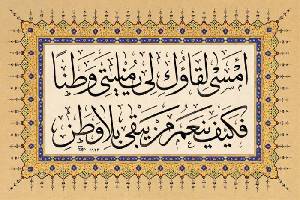 أمسى لقاؤك لي يا منيتي وطنا
فكيف ينعم من يبقى بلا وطن